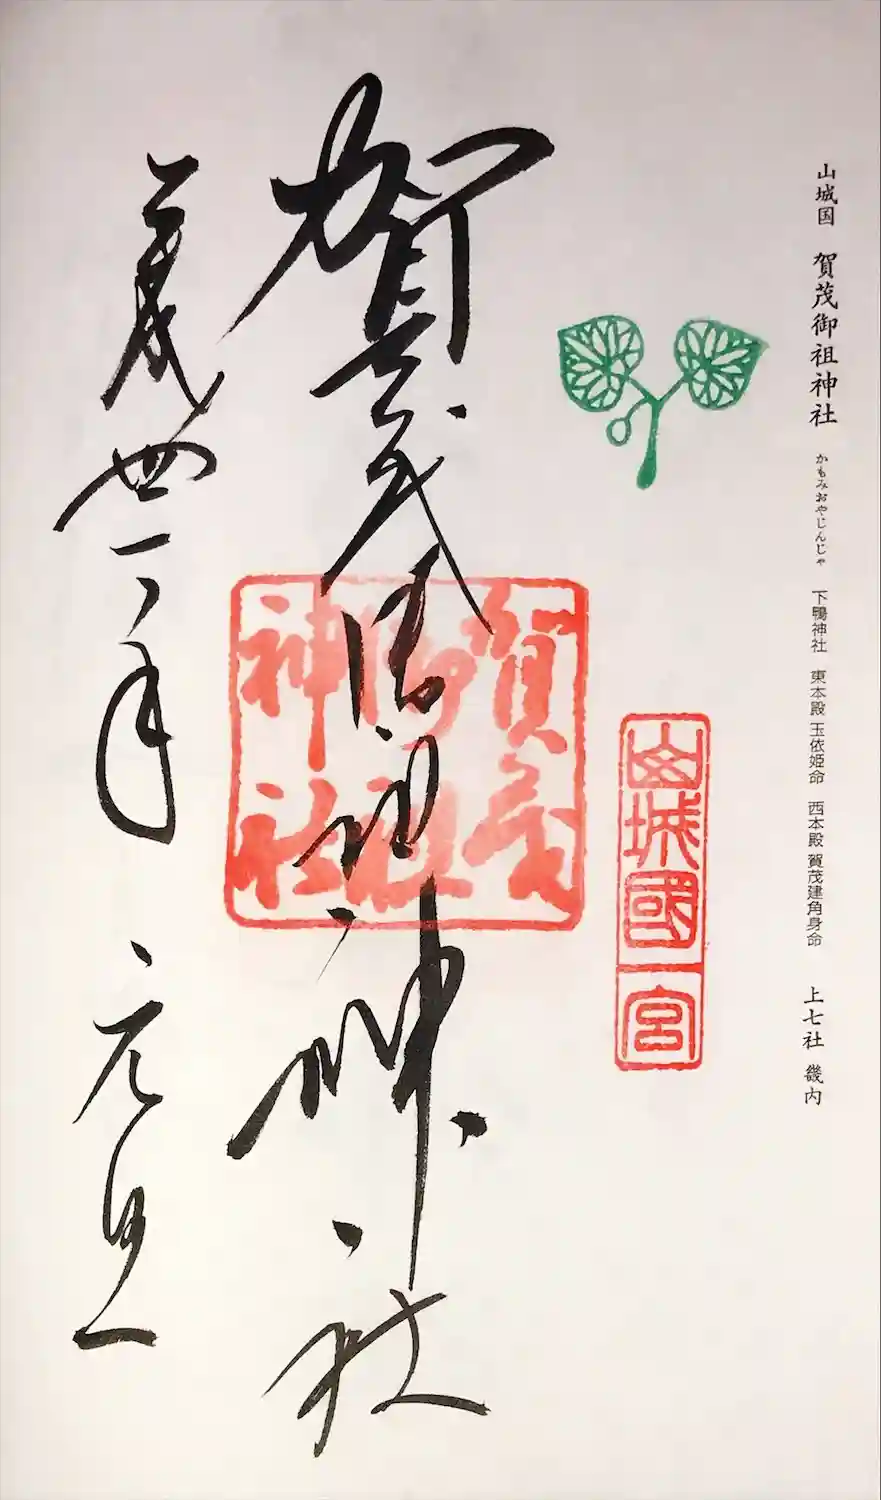 山城国 賀茂御祖神社 かもみおやじんじゃ 下鴨神社 東本殿 玉依姫命 西本殿 賀茂建角身命 上七社 畿内
山城國一宮
賀茂御祖神社
賀茂
御祖
神社
平成丗一年 元旦